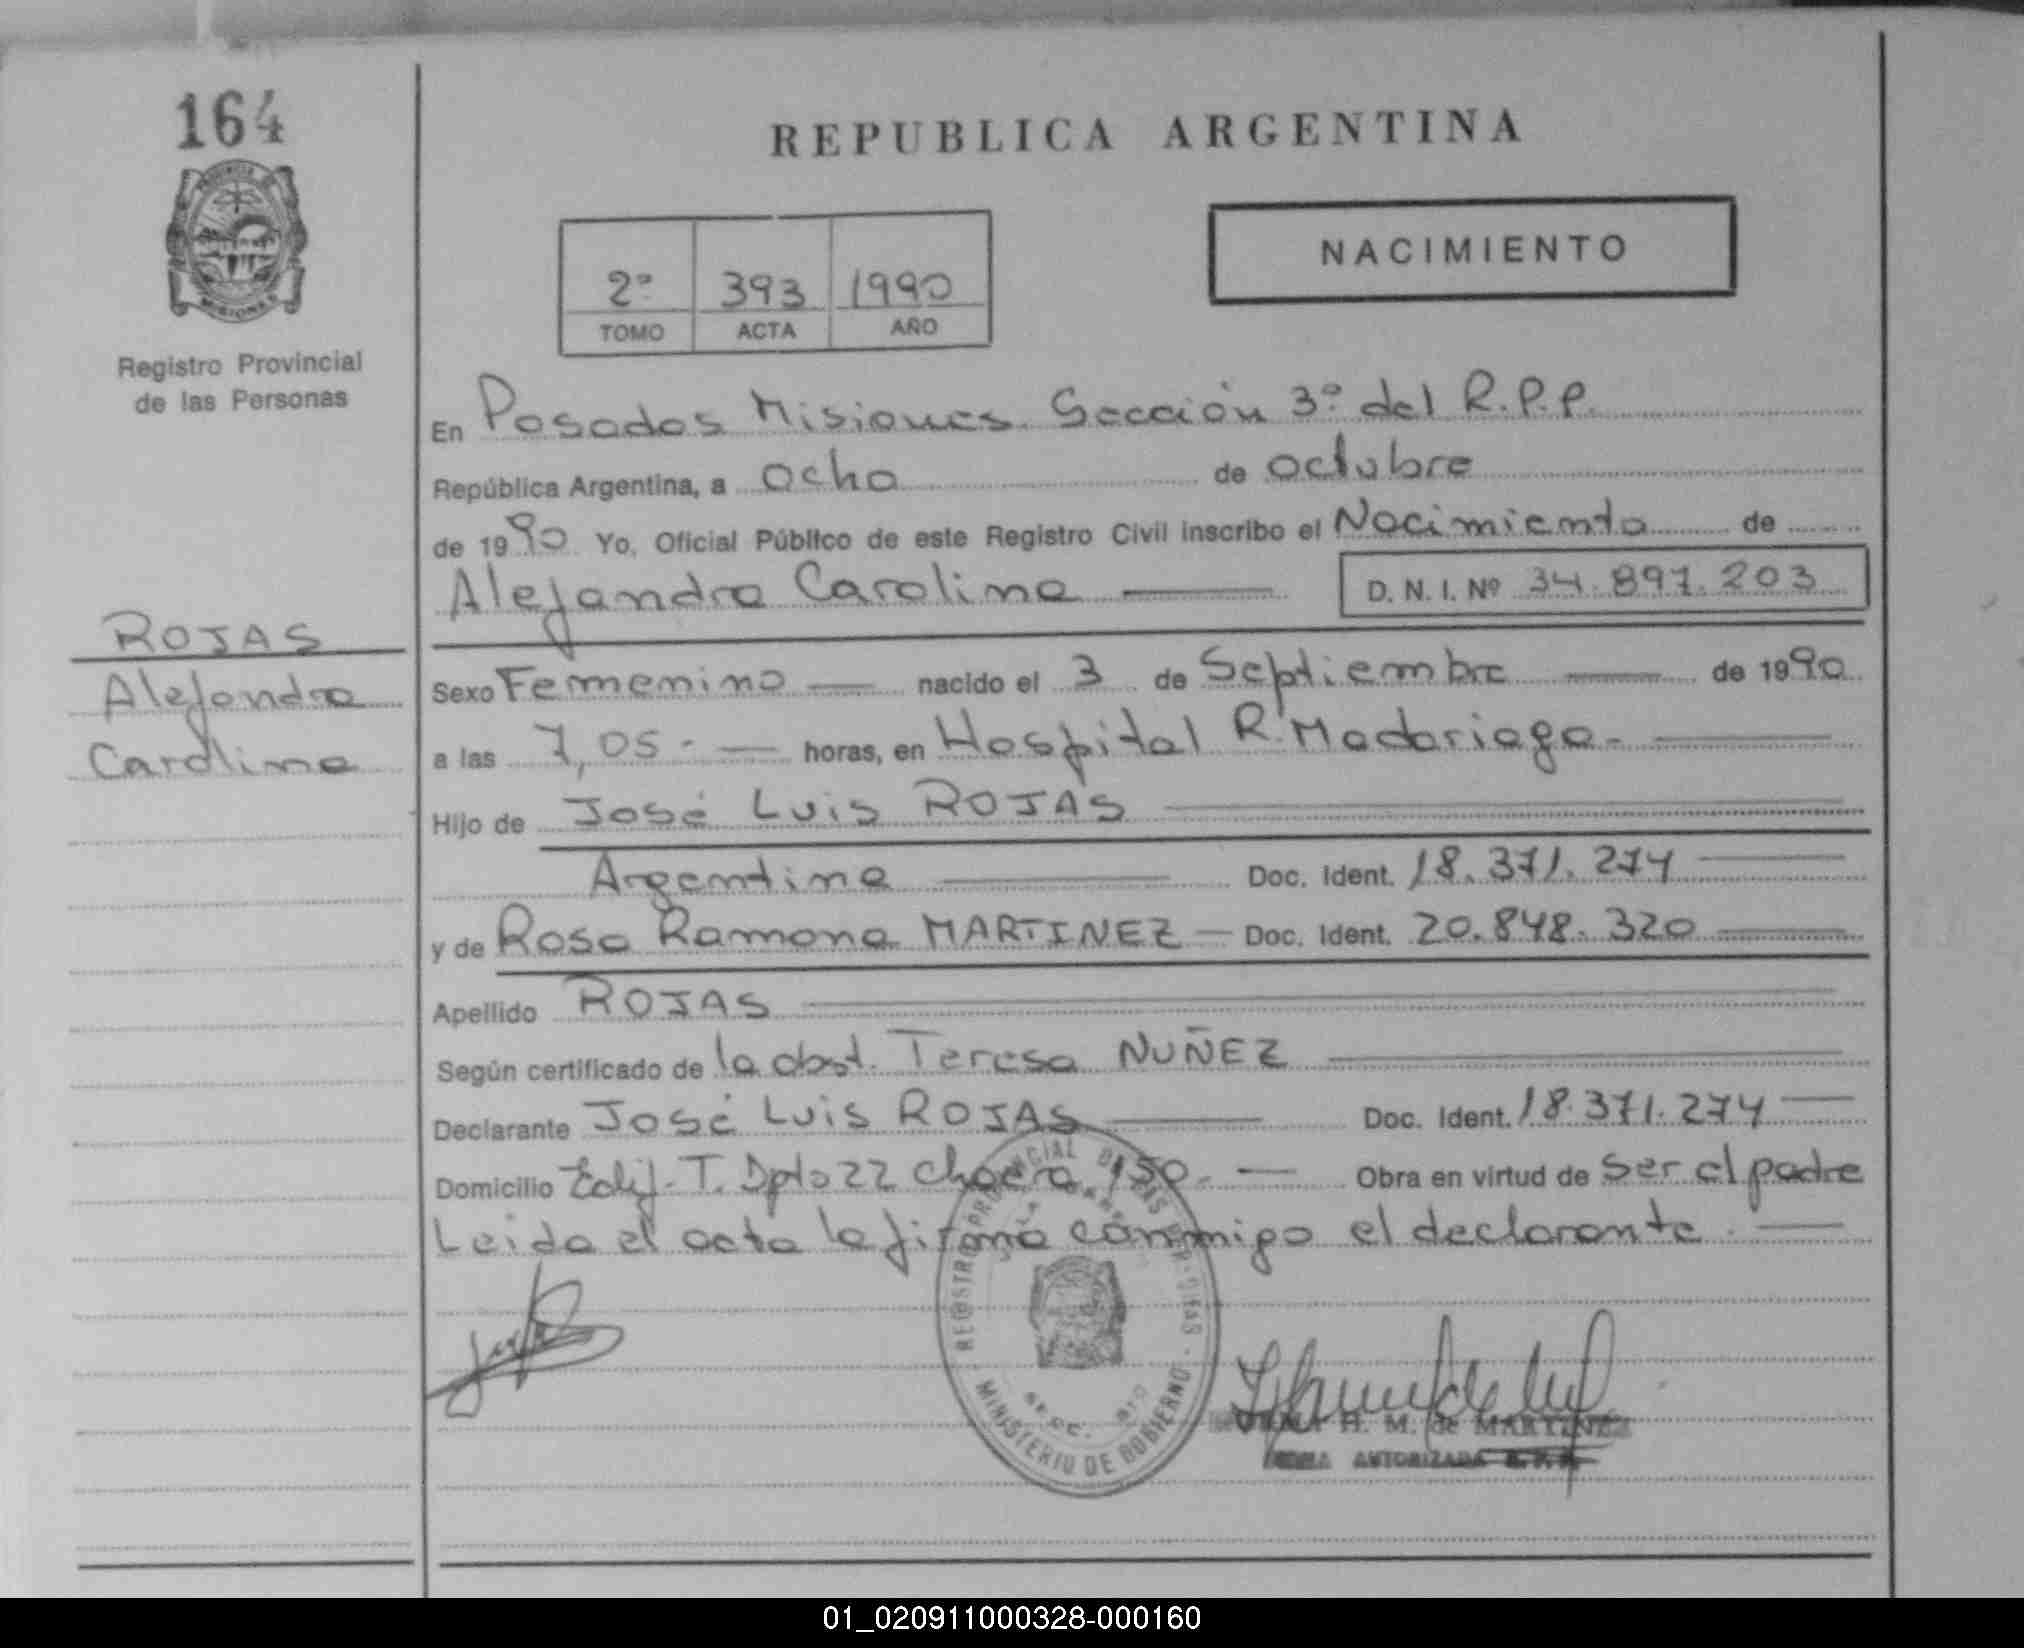 164
PROVINCIA DE
MISIONES
Registro Provincial
de las Personas
ROJAS
Alejandra
Carolina
REPUBLICA ARGENTINA
NACIMIENTO
2º 393 1990
TOMO ACTA AÑO
En Posadas Misiones. Sección 3º del R.P.P.
República Argentina, a ocho de octubre
de 1990 Yo, Oficial Público de este Registro Civil inscribo el Nacimiento de
Alejandra Carolina D. N. I. Nº 34.897.203
Sexo Femenino nacido el 3 de Septiembre de 1990
a las 7,05.- horas, en Hospital R. Madariaga.-
Hijo de José Luis ROJAS
Argentina Doc. Ident. 18.371.274
y de Rosa Ramona MARTINEZ - Doc. Ident. 20.848.320
Apellido ROJAS
Según certificado de la obst. Teresa NUÑEZ
Declarante José Luis ROJAS Doc. Ident. 18.371.274
Domicilio Edif. T. Dpto 22 chacra 150.- Obra en virtud de ser el padre
Leida el acta la firma conmigo el declarante.
REGISTRO PROVINCIAL DE LAS PERSONAS
MINISTERIO DE GOBIERNO
H. M. de MARTINEZ
FIRMA AUTORIZADA
01_020911000328-000160